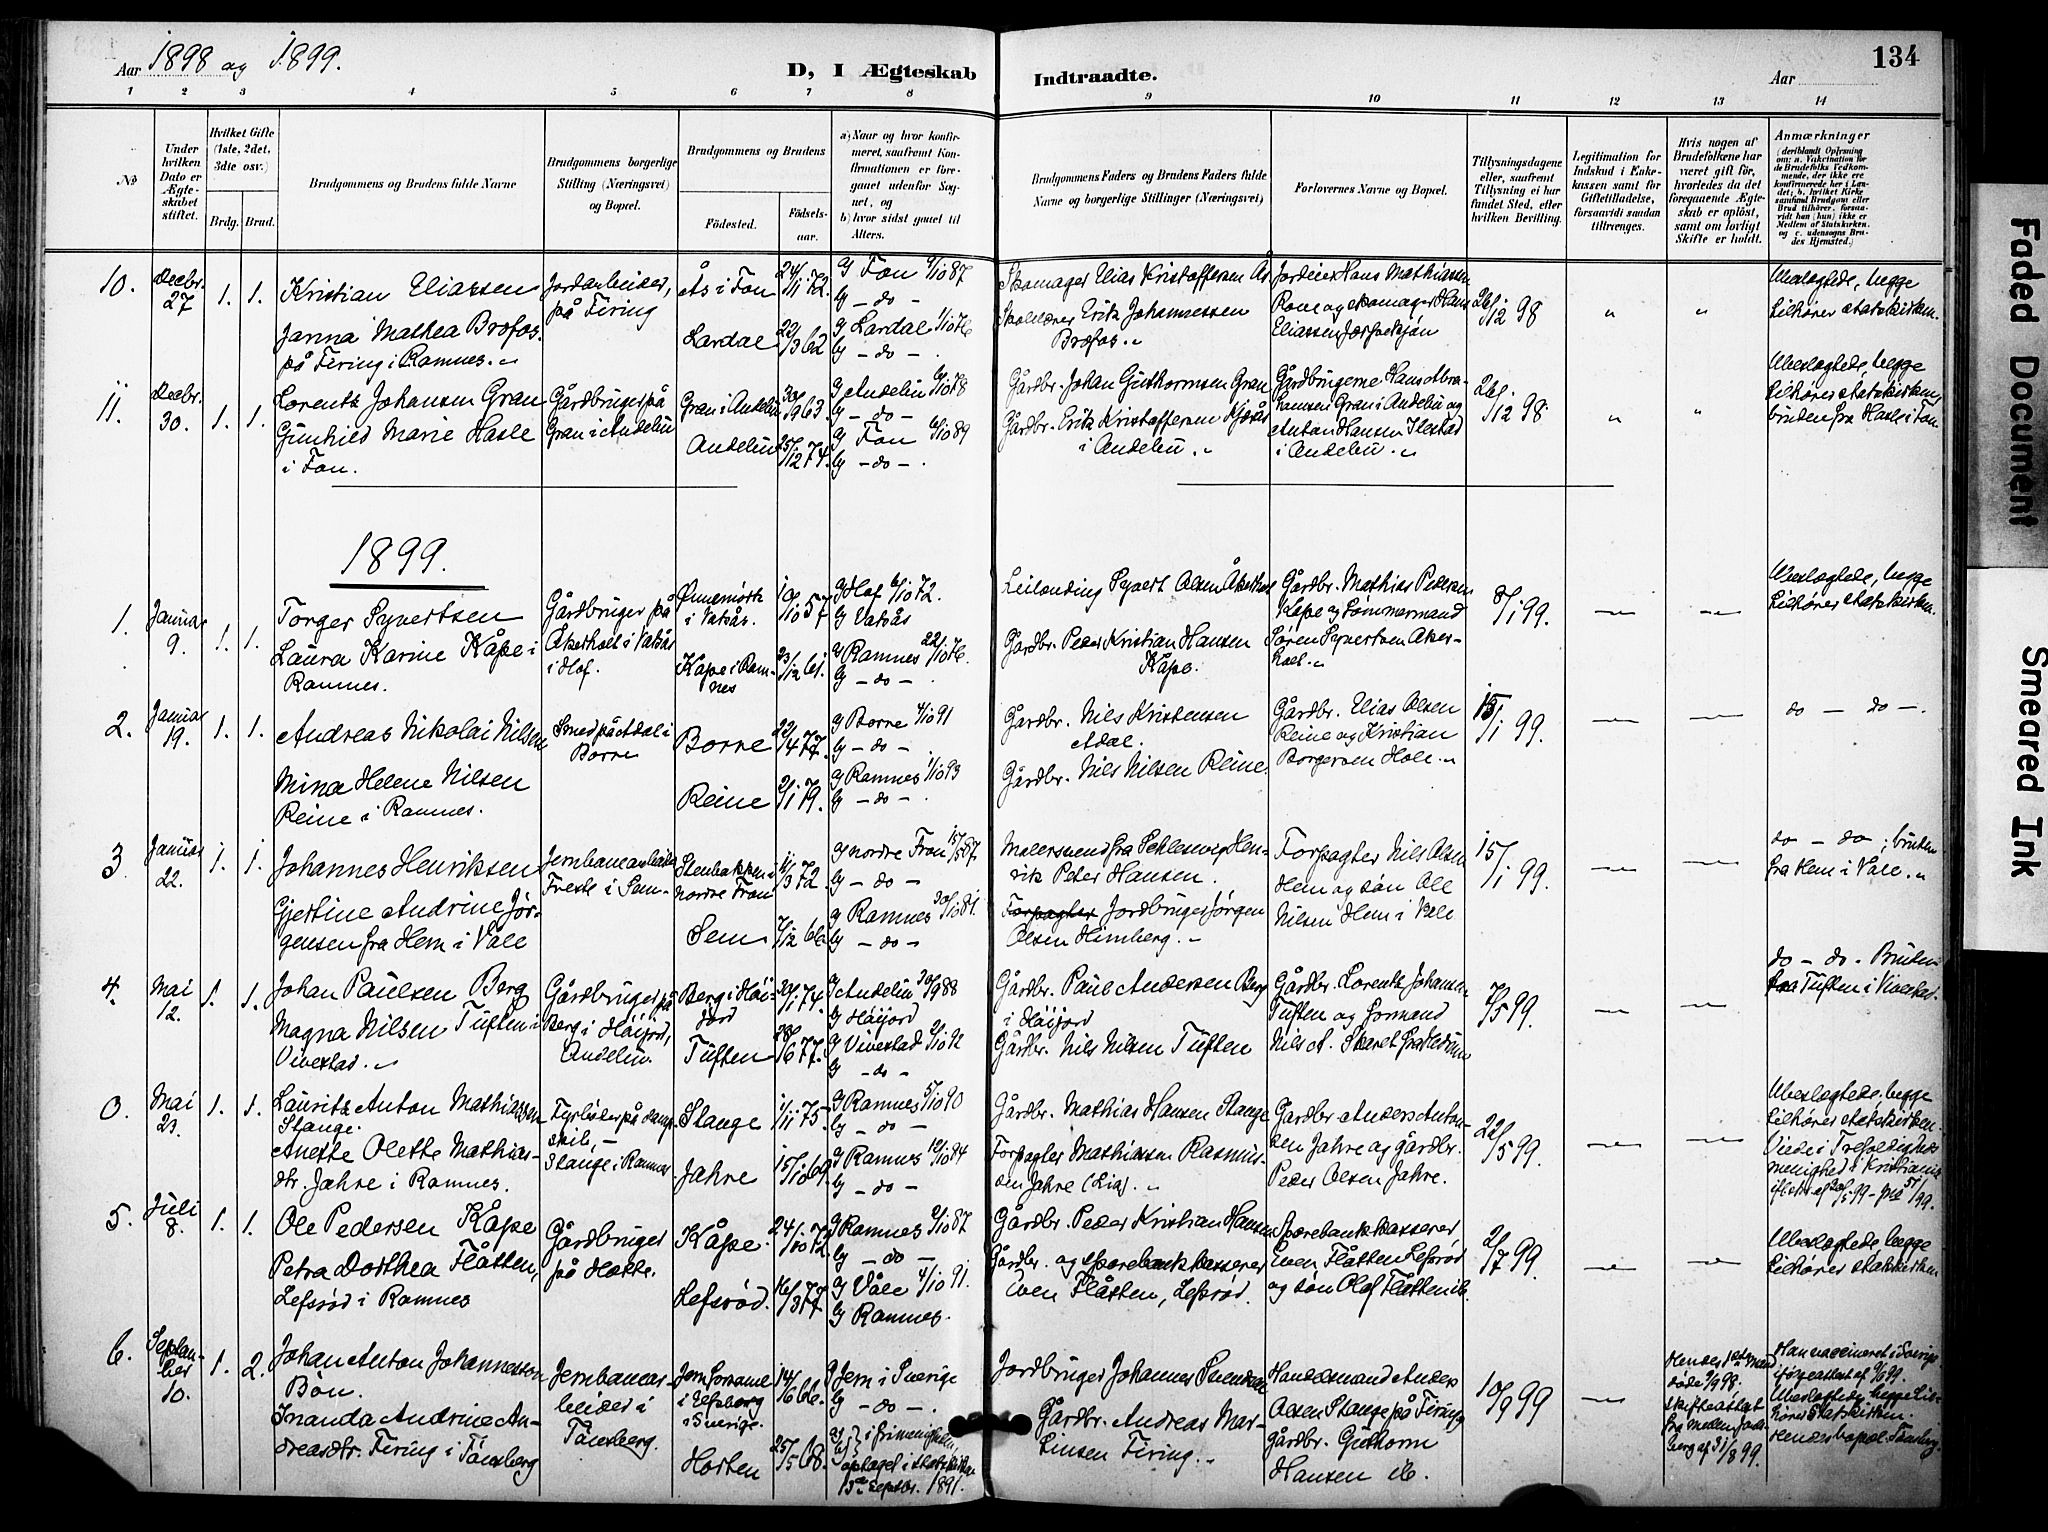 Aar 1898 og 1899.
D, I Ægteskab Indtraadte.
Aar
134
1 2 3 4 5 6 7 8 9 10 11 12 13 14
No
Under hvilken Dato er Ægteskabet stiftet.
Hvilket Gifte (1ste, 2det, 3die osv.)
Brdg. Brud.
Brudgommens og Brudens fulde Navne
Brudgommens borgerlige Stilling (Næringsvei) og Bopæl.
Brudgommens og Brudens
Fødested. Fødselsaar.
a) Naar og hvor konfirmeret, saafremt Konfirmationen er foregaaet udenfor Sognet, og
b) hvor sidst gaaet til Alters.
Brudgommens Faders og Brudens Faders fulde Navne og borgerlige Stillinger (Næringsvei)
Forlovernes Navne og Bopæl.
Tillysningsdagene eller, saafremt Tillysning ei har fundet Sted, efter hvilken Bevilling.
Legitimation for Indskud i Enkekassen samt for Giftetilladelse, forsaavidt saadan tiltrænges.
Hvis nogen af Brudefolkene har været gift før, hvorledes da det foregaaende Ægteskab er opløst, samt om lovligt Skifte er holdt.
Anmærkninger
(deriblandt Oplysning om: a. Vakcination for de Brudefolks Vedkommende, der ikke ere konfirmerede her i Landet; b. hvilket Kirkesamfund Brudgom eller Brud tilhører, forsaavidt han (hun) ikke er Medlem af Statskirken, og c. udensogns Brudes Hjemsted.)
10. Decbr. 27 1. 1. Kristian Eliassen
Jordarbeider, på Firing
Ås i Fon 24/11 72. a) Fon 9/10 87 b) - do -
Skomager Elias Kristoffersen Ås
26/12 98
Ubeslægtede, begge tilhører statskirken.
Janna Mathea Brøfos. på Firing i Ramnes.
Lardal 22/3 62 a) Lardal 1/10 76 b) - do -
Erik Johannessen Brøfos.
11. Decbr. 30. 1. 1. Lorentz Johansen Gran
Gårdbruger på Gran i Andebu
Gran i Andebu 30/9 63 a) Andebu 6/10 78 b) - do -
Gårdbr. Johan Guthormsen Gran
Gårdbrugerne Hans Abrahamsen Gran i Andebu og Anton Hansen Ilestad i Andebu.
26/12 98
Ubeslægtede, begge tilhører statskirken, bruden fra Hasle i Fon.
Gunhild Marie Hasle i Fon.
Andebu 25/12 74. a) Fon 6/10 89 b) - do -
Gårdbr. Erik Kristoffersen Kjøås i Andebu.
1899.
1. Januar 9. 1. 1. Torger Syvertsen
Gårdbruger på Åkerholt i Vasås i Hof.
i Vasås. 10/10 57 a) Hof 6/10 72. b) Vasås
Leilending Syvert Olsen Åkerholt
Gårdbr. Mathias Pedersen Kåpe og Tømmermand Søren Syvertsen Akerholt.
8/1 99.
Ubeslægtede, begge tilhører statskirken.
Laura Karine Kåpe i Ramnes.
Kåpe i Ramnes 23/12 61. a) Ramnes 22/10 76. b) - do -
Gårdbr. Peder Kristian Hansen Kåpe.
2. Januar 19. 1. 1. Andreas Nikolai Nilsen
Smed på Adal i Borre
Borre 22/4 77. a) Borre 4/10 91 b) - do -
Gårdbr. Nils Kristensen Adal.
Gårdbr. Elias Olsen Reine og Kristian Borgersen Hole.
15/1 99.
do - do -.
Mina Helene Nilsen Reine i Ramnes.
Reine 2/1 79. a) Ramnes 1/10 93 b) - do -
Gårdbr. Nils Nilsen Reine.
3 Januar 22. 1. 1. Johannes Henriksen
Jernbanearbeider Freste i Sem
Stenbakken i nordre Fron 11/3 72 a) nordre Fron 15/5 87. b) - do -
Malersvend fra Schleswig Henrik Peter Hansen.
Forpagter Nils Olsen Hem og søn Ole Nilsen Hem i Våle
15/1 99.
do - do; bruden fra Hem i Våle.
Gjertine Andrine Jørgensen fra Hem i Våle
Sem 7/12 66 a) Ramnes 30/10 81. b) - do -
Forpagter Jordbruger Jørgen Olsen Himberg.
4. Mai 12. 1. 1. Johan Paulsen Berg
Gårdbruger på Berg i Høijord, Andebu.
Berg i Høijord 20/1 74. a) Andebu 30/9 88 b) Høijord
Gårdbr. Paul Andersen Berg i Høijord
Gårdbr. Lorentz Johansen Tuften og formand Nils A. Skaret fra Hedrum
7/5 99.
do - do - Bruden fra Tuften i Vivestad.
Magna Nilsen Tuften i Vivestad.
Tuften 28/6 77. a) Vivestad 2/10 92 b) - do -
Gårdbr. Nils Nilsen Tuften
0. Mai 23. 1. 1. Lauritz Anton Mathiassen Stange.
Fyrbøder på dampskib, - Stange i Ramnes
Stange 1/11 75. a) Ramnes 5/10 90 b) - do -
Gårdbr. Mathias Hansen Stange
Gårdbr Anders Antonsen Jahre og gårdbr. Peder Olsen Jahre.
22/5 99.
Ubeslægtede, begge tilhører statskirken. Viede i Trefoldigheds menighed i Kristiania
Anette Olette Mathiasdtr. Jahre i Ramnes.
Jahre 15/10 69. a) Ramnes 12/10 84 b) - do -
Forpagter Mathiasen Rasmussen Jahre (Lia).
5. Juli 8. 1. 1. Ole Pedersen Kåpe
Gårdbruger på Hotte.
Kåpe. 24/10 72. a) Ramnes 2/10 87 b) - do -
Gårdbr. Peder Kristian Hansen
Sparebankkasserer Even Flåtten Lefsrød og søn Olaf Flåtten ib.
2/7 99.
Ubeslægtede begge tilhører statskirken
Petra Dorthea Flåtten, Lefsrød i Ramnes
Lefsrød. 16/3 77. a) Våle 4/10 91. b) Ramnes.
Gårdbr. og sparebankkasserer Even Flåtten, Lefsrød.
6. September 10. 1. 2. Johan Anton Johannesson Bön.
Jernbanearbeider i Tönsberg.
i Elfsborg i Sverige. 14/6 66. a) Jern i Sverige b) - do -
Jordbruger Johannes Svendsen
Handelsmand Anders Olsen Stange på Firing gårdbr. Guthorm Hansen ib.
10/9 99
Hendes 1ste mand døde 7/9 98. skifteattest fra af 31/8 99.
Han vaccineret i Sverige ifølge attest af Ubeslægtede, begge tilhører Statskirken. Hendes bopæl Tönsberg.
Inanda Andrine Andreasdtr. Firing i Tönsberg
Horten 25/5 68. a) b) i frimenighed, optaget i statskirken 15de Septbr. 1891.
Gårdbr. Andreas Martinsen Firing.
Faded Document
Smeared Ink